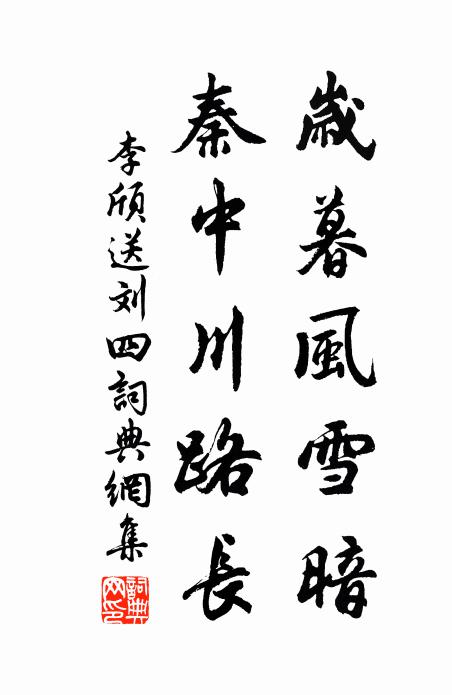 歲暮風雪暗
秦中川路長
李頎送刘四詞典網集
詞典
网印